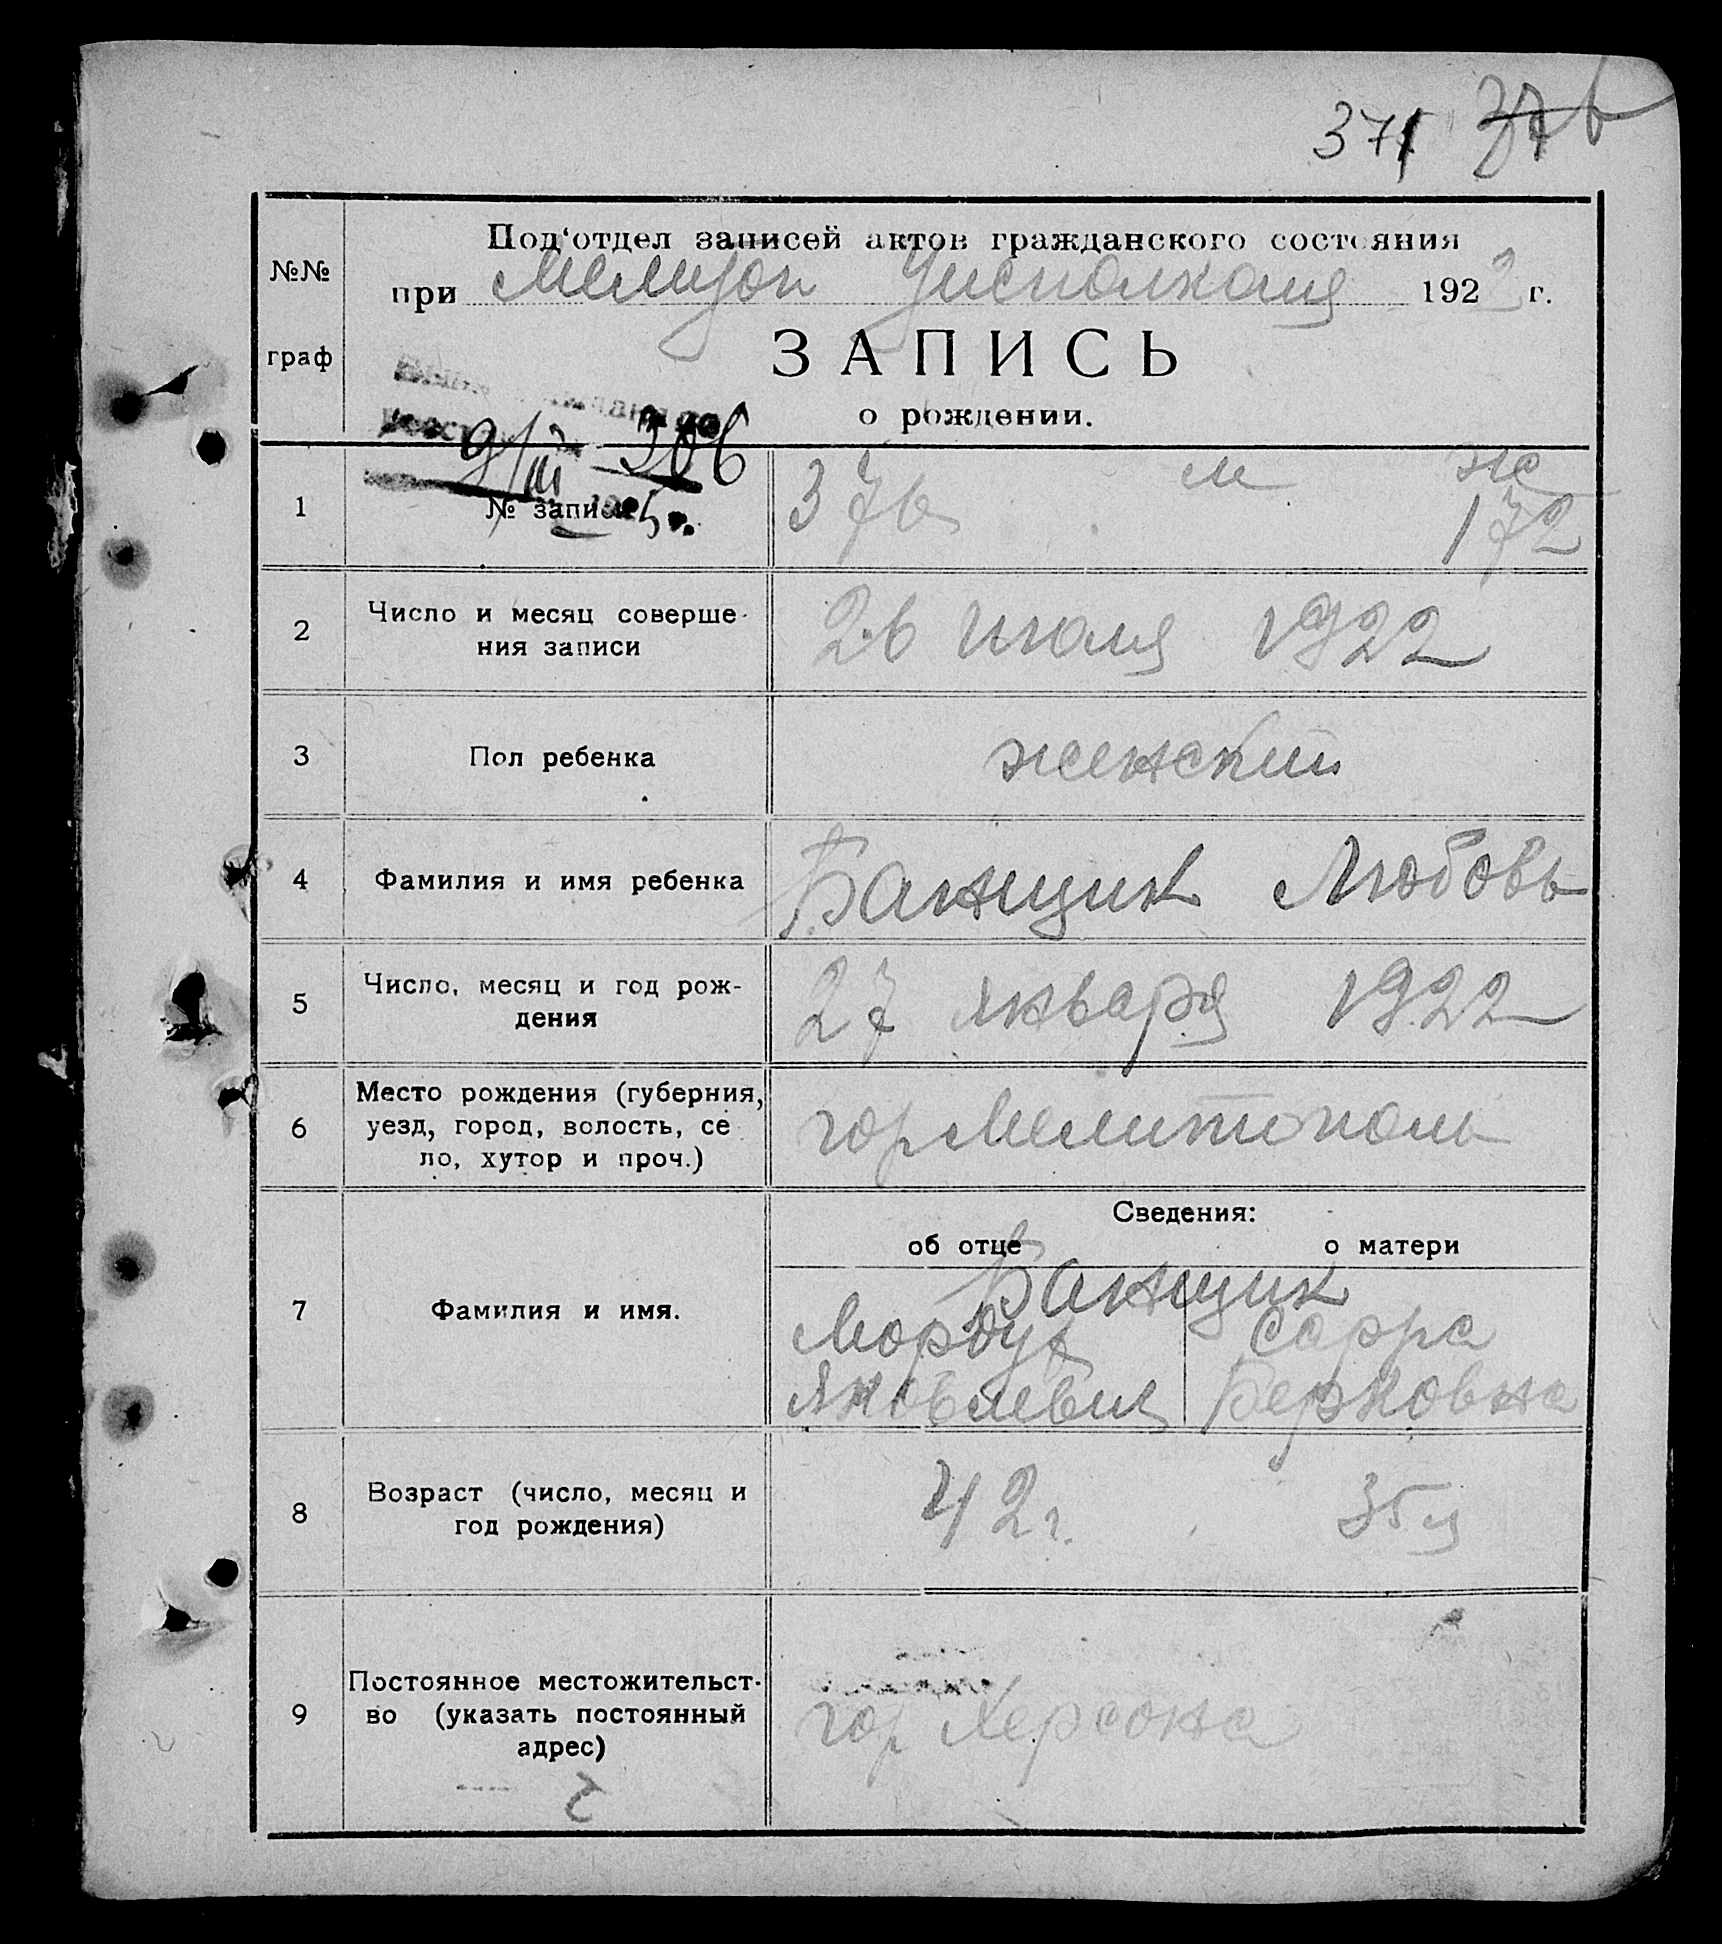 371 376
Под‘отдел записей актов гражданского состояния
№№
при Мелитоп Уисполкома 1922 г.
ЗАПИСЬ
граф
о рождении.
9/III 306
1 № записи 376 м ж
172
2 Число и месяц соверше-
ния записи
26 июля 1922
3 Пол ребенка женский
4 Фамилия и имя ребенка Банщик Любовь
5 Число, месяц и год рож-
дения
27 января 1922
6 Место рождения (губерния,
уезд, город, волость, се
ло, хутор и проч.)
гор Мелитополь
Сведения:
об отце о матери
7 Фамилия и имя.
Банщик
Мордух Сарра
Яковлевич Берковна
8 Возраст (число, месяц и
год рождения)
42 г. 35 л
9 Постоянное местожительст-
во (указать постоянный
адрес)
гор Херсона